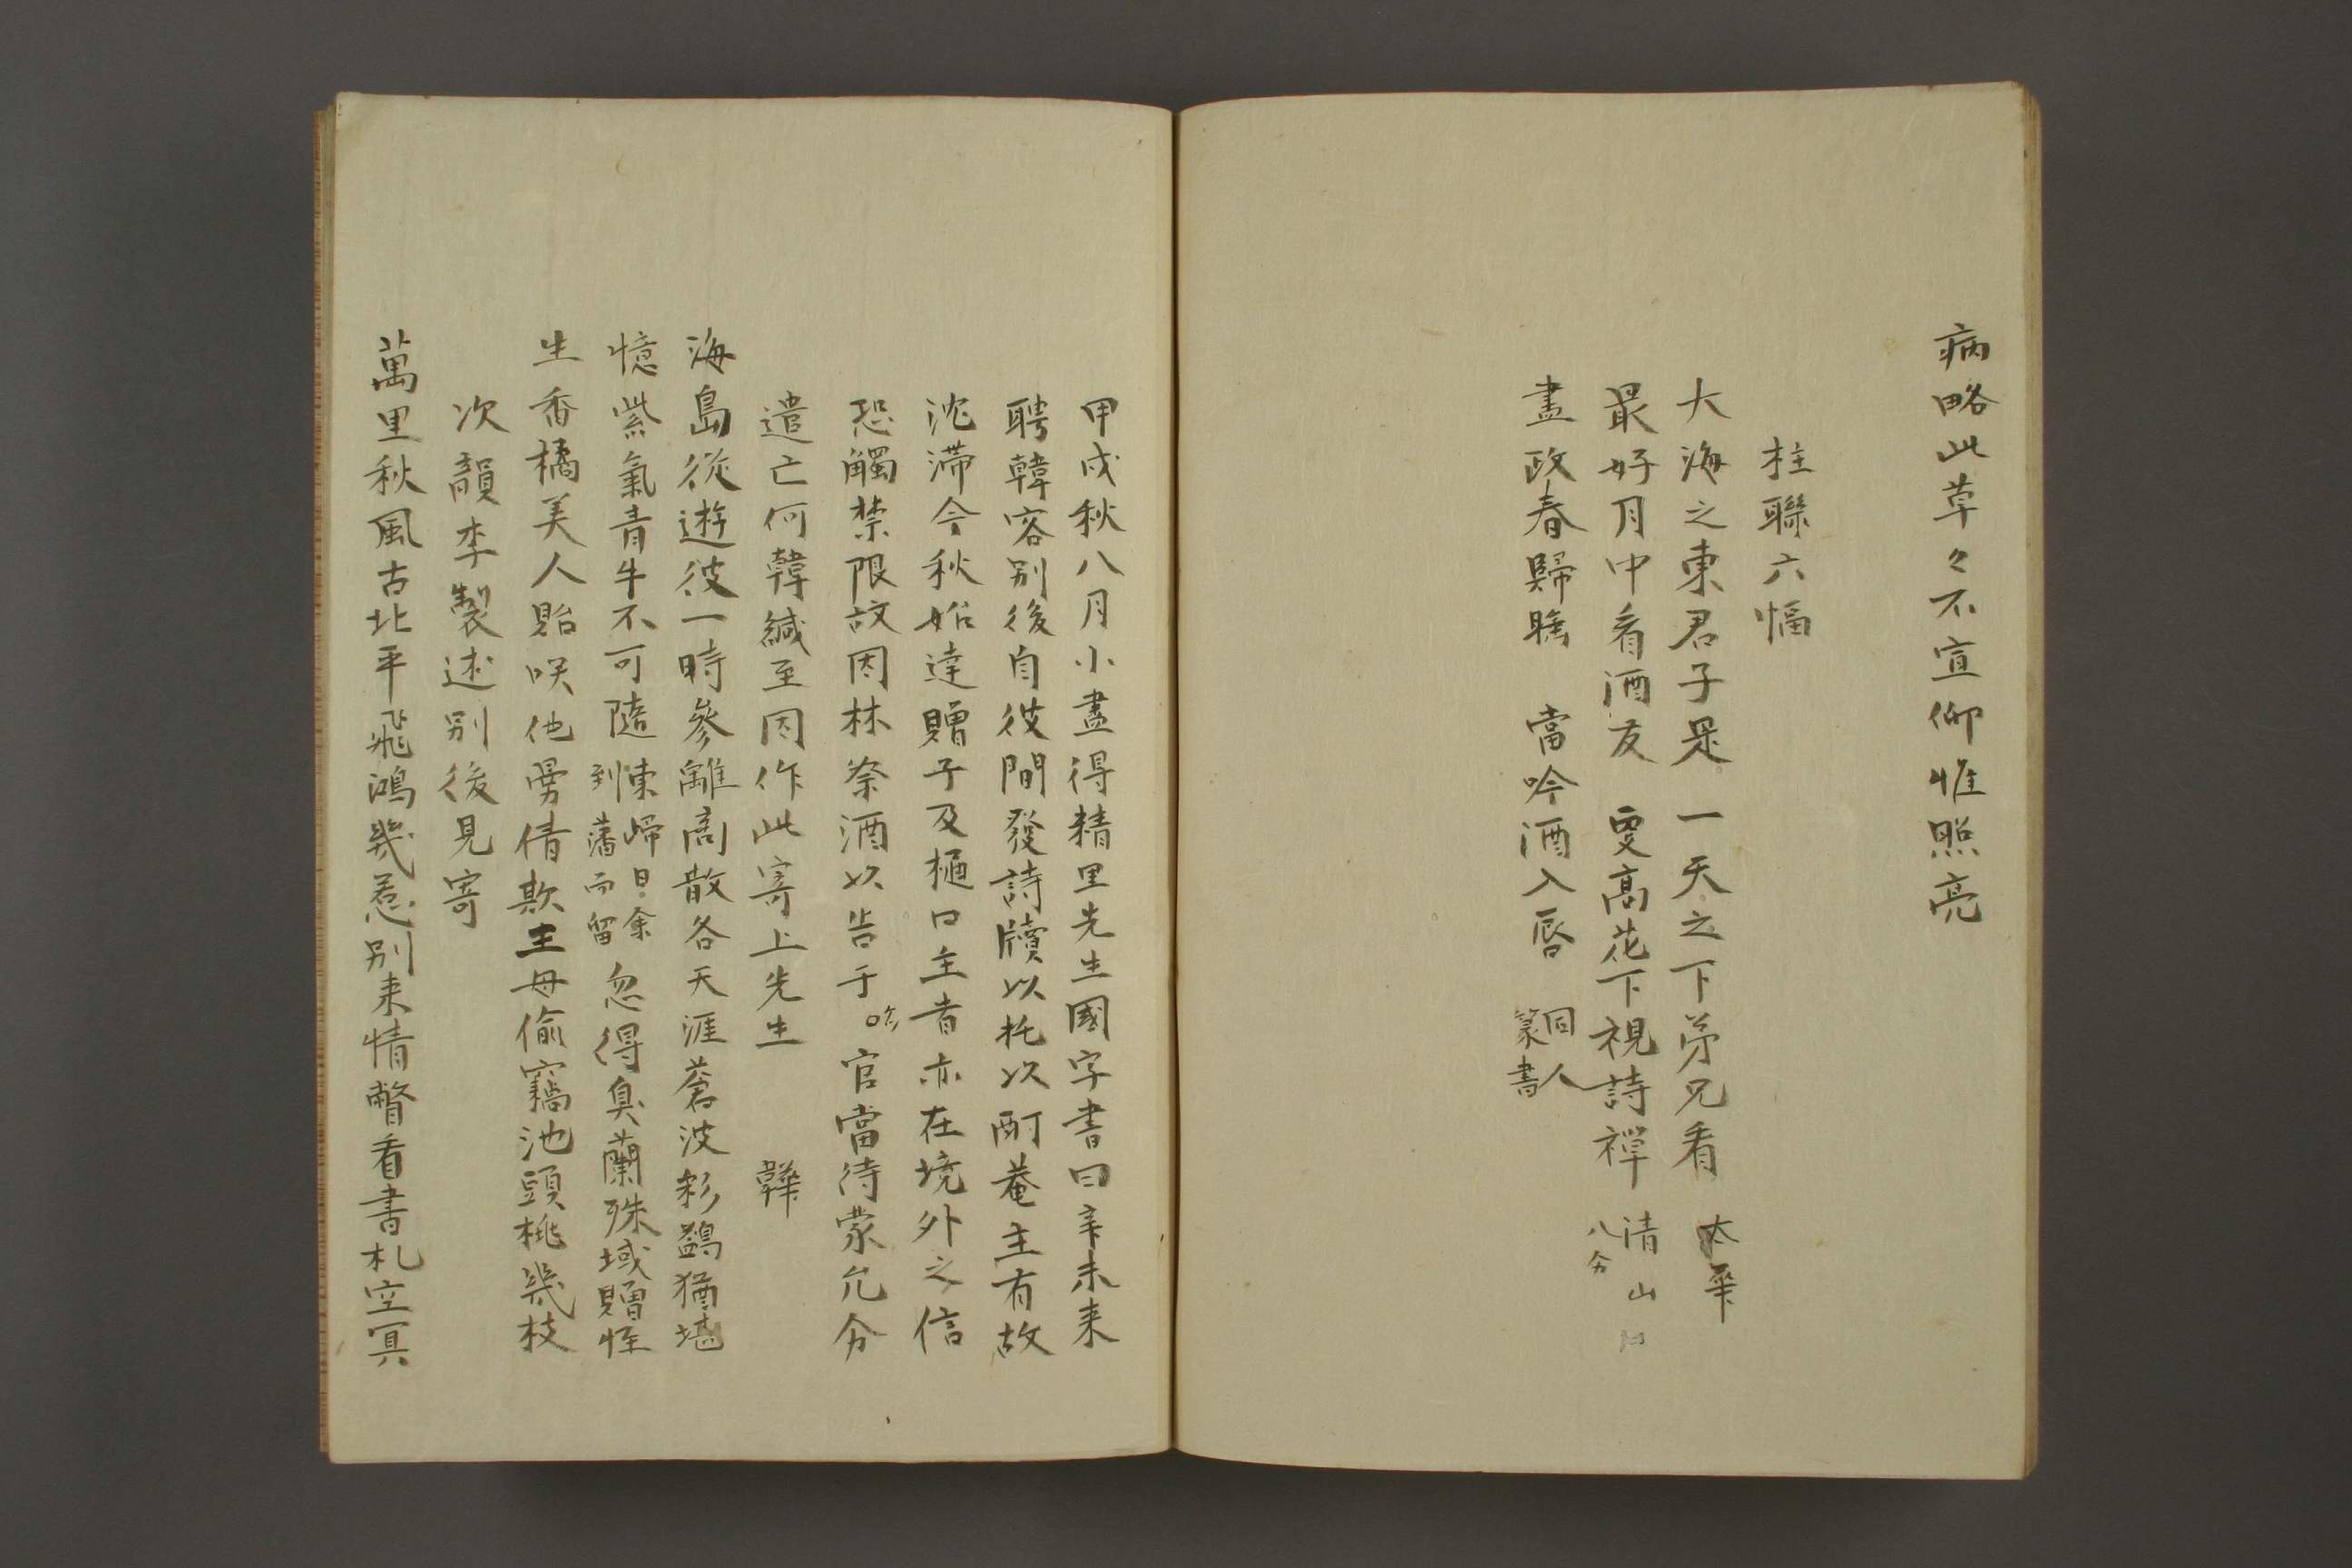 病略此草々不宣仰惟照亮
柱聯六幅
大海之東君子是 一天之下弟兄看 太華
最好月中看酒友 更高花下視詩禪 清山
八分
盡政春歸 當吟酒入唇 同人
篆書
甲戌秋八月小盡得精里先生國字書曰辛未来
聘韓客別後自彼間發詩牘以托次酊菴主有故
沈滞今秋始達贈子及樋口主者亦在境外之信
恐觸禁限故因林祭酒以告于官當待蒙允分
遣亡何韓緘至因作此寄上先生 韡
海島從遊彼一時參離商散各天涯蒼波彩鷁猶堪
憶紫氣青牛不可隨東歸日余
到藩而留忽得臭蘭殊域贈恠
生香橘美人貽咲他曼倩欺主母偷竊池頭桃幾枝
次韻李製述別後見寄
萬里秋風古北平飛鴻幾惹別来情瞥看書札空冥